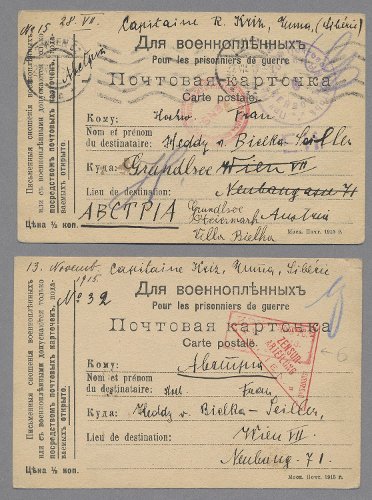 No 15 28. VII. Capitaine R. Kriz, Чита, (Sibérie)
Для военноплѣнныхъ
Pour les prisonniers de guerre
Почтовая карточка
Carte postale.
Кому: Frau
Nom et prénom
du destinataire: Heddy v. Bielka-Seiller
Куда: Grundlsee Wien VII
Lieu de destination: Neubaugasse 71
АВСТРІА Grundlsee
Steiermark Austria
Villa Bielka
Цѣна ½ коп.
Моск. Почт. 1915 г.
Письменныя сношенія военноплѣнныхъ
или съ военноплѣнными допускаются только
посредствомъ почтовыхъ карточекъ, пода-
ваемыхъ открыто.
13. Novemb. 1915. Capitaine Kriz, Sibérie
No 32
Для военноплѣнныхъ
Pour les prisonniers de guerre
Почтовая карточка
Carte postale.
Кому: Австрія
Nom et prénom
du destinataire: Frau
Куда: Heddy v. Bielka-Seiller,
Lieu de destination: Wien VII.
Neubaug. 71.
Цѣна ½ коп.
Моск. Почт. 1915 г.
Письменныя сношенія военноплѣнныхъ
или съ военноплѣнными допускаются только
посредствомъ почтовыхъ карточекъ, пода-
ваемыхъ открыто.
ZENSUR